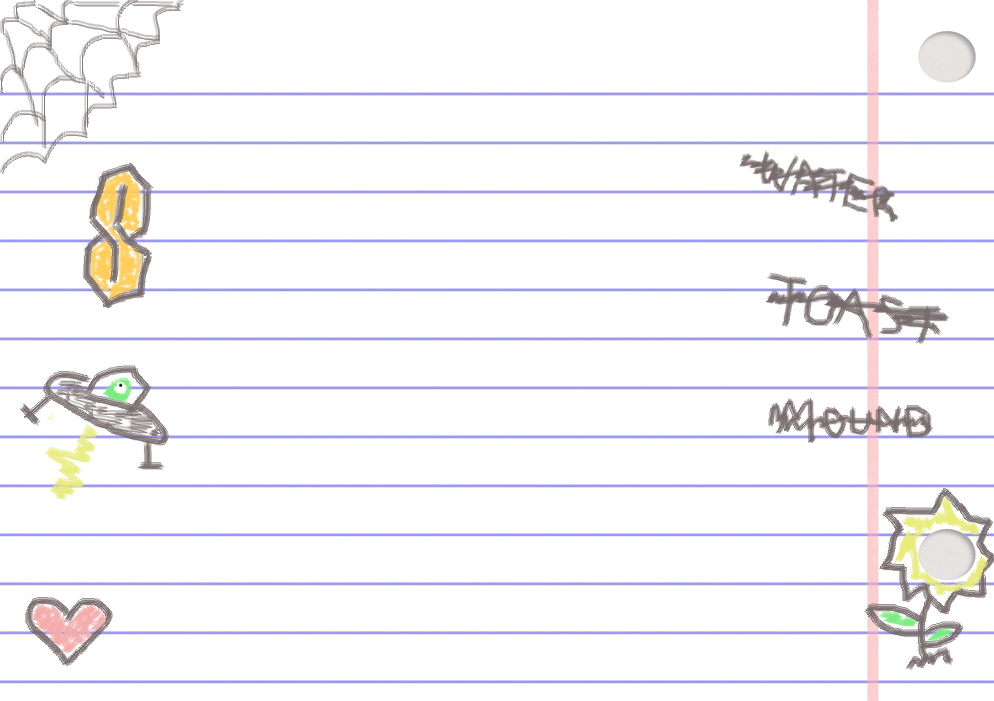 WATER
TOAST
MOUND